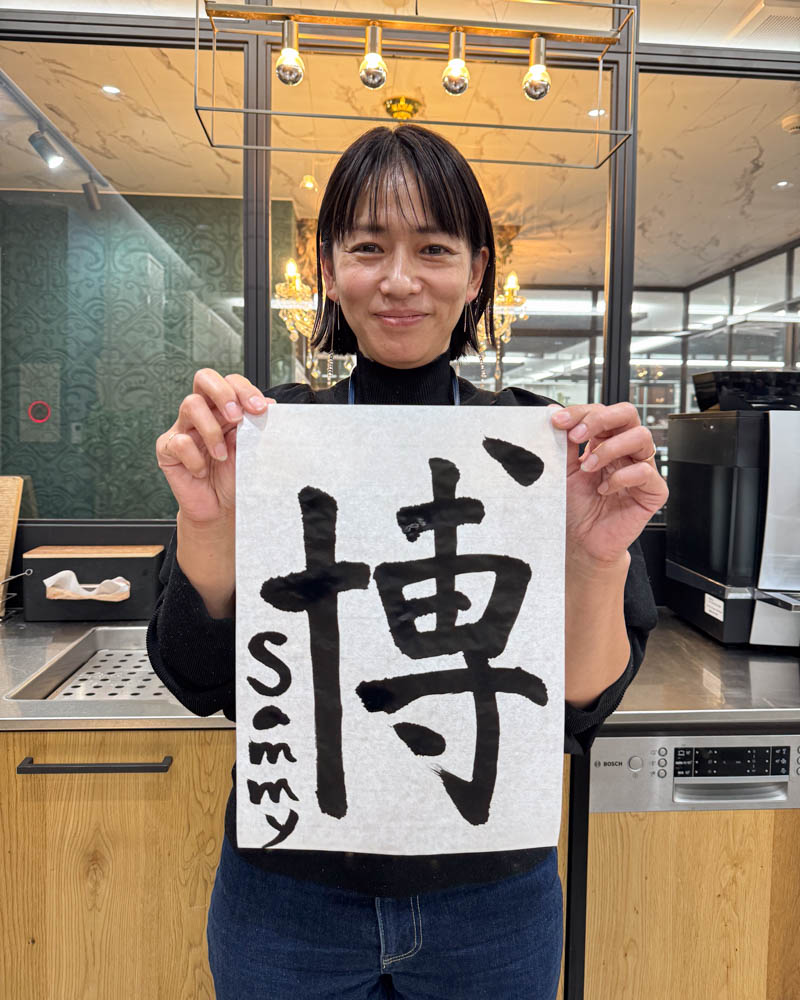 博
Sammy
BOSCH